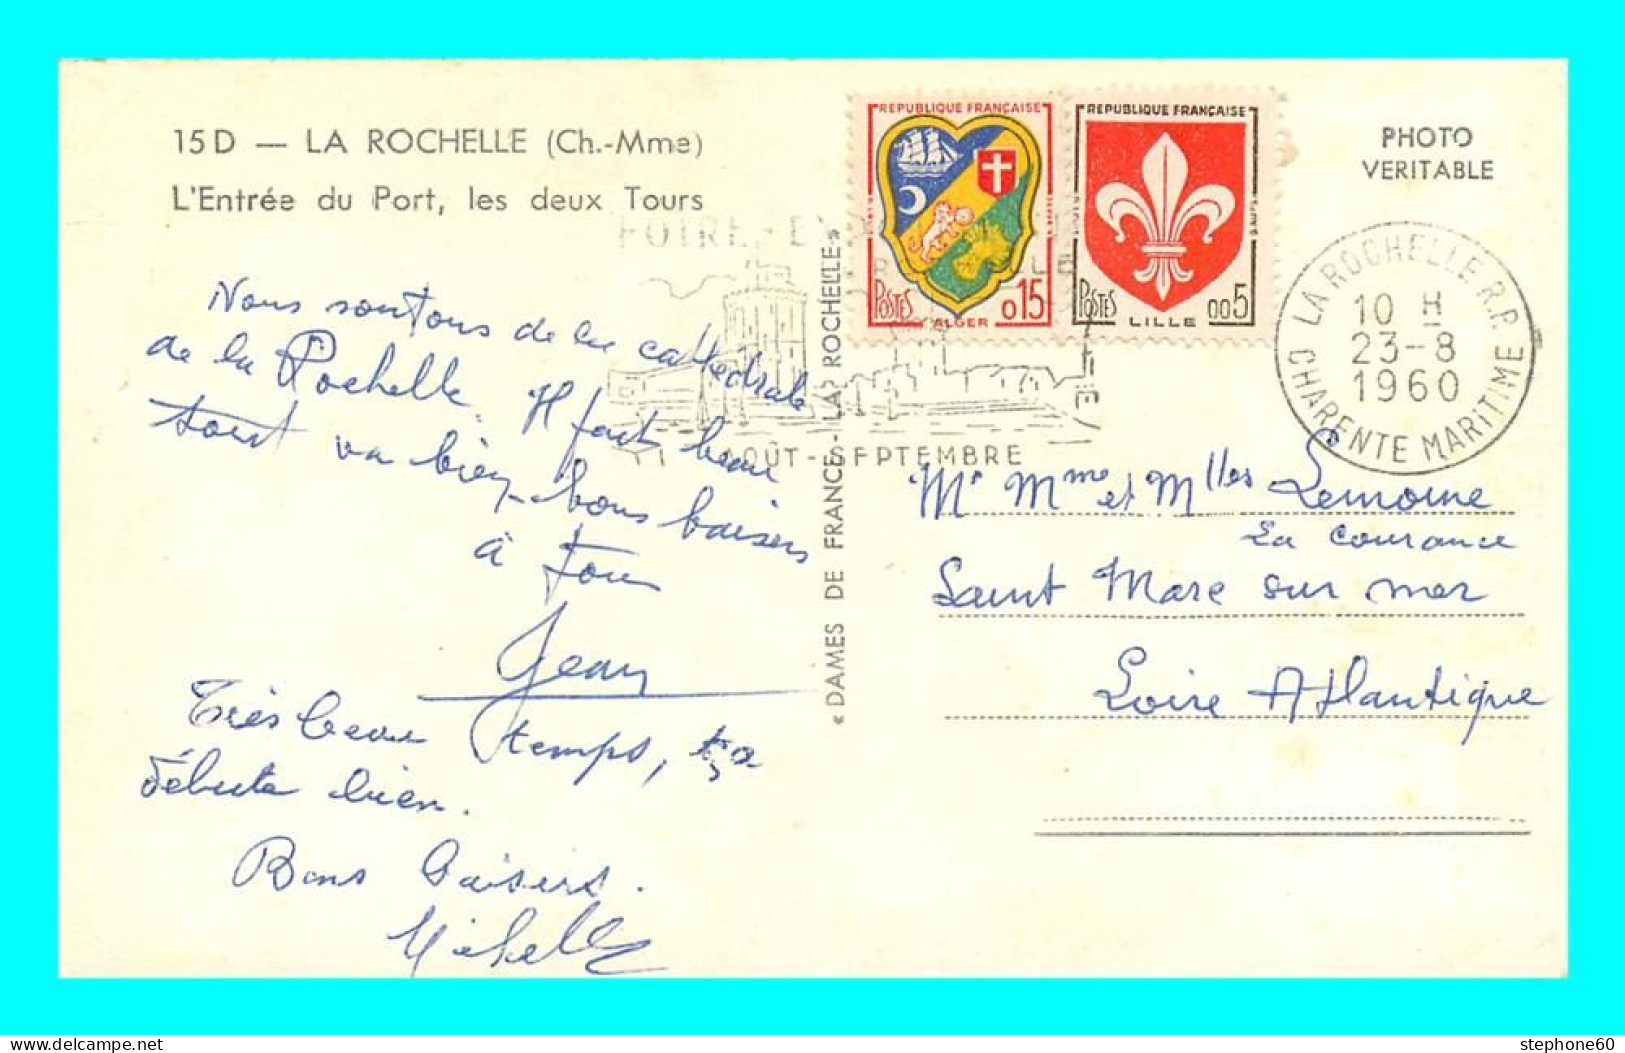 15 D — LA ROCHELLE (Ch.-Mme)
L'Entrée du Port, les deux Tours
PHOTO
VERITABLE
REPUBLIQUE FRANÇAISE
POSTES
ALGER
0 15
REPUBLIQUE FRANÇAISE
POSTES
LILLE
0 05
FOIRE-
AOÛT-SEPTEMBRE
LA ROCHELLE R.P.
10 H
23-8
1960
CHARENTE MARITIME
Nous sortons de la cathédrale
de la Rochelle. Il fait beau
tout va bien, bons baisers
à tous
Jean
Très beau temps, ça
débute bien.
Bons baisers.
Michelle
« DAMES DE FRANCE-LA ROCHELLE »
Mr Mme et Mlles Lemoine
La Courance
Saint Marc sur mer
Loire Atlantique
stephone60